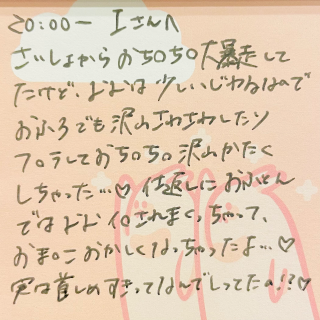 20:00ー Iさんへ
さいしょから おち〇ち〇大暴走して
たけど、およは 少しいじわるなので
おふろでも沢山さわさわしたり
フ〇ラしておち〇ち〇 沢山かたく
しちゃった…♡ 仕返しにおふとん
では およ イ〇されまくっちゃって、
おま〇こおかしくなっちゃったよ…♡
実は首しめすきってなんでしってたの!?♡